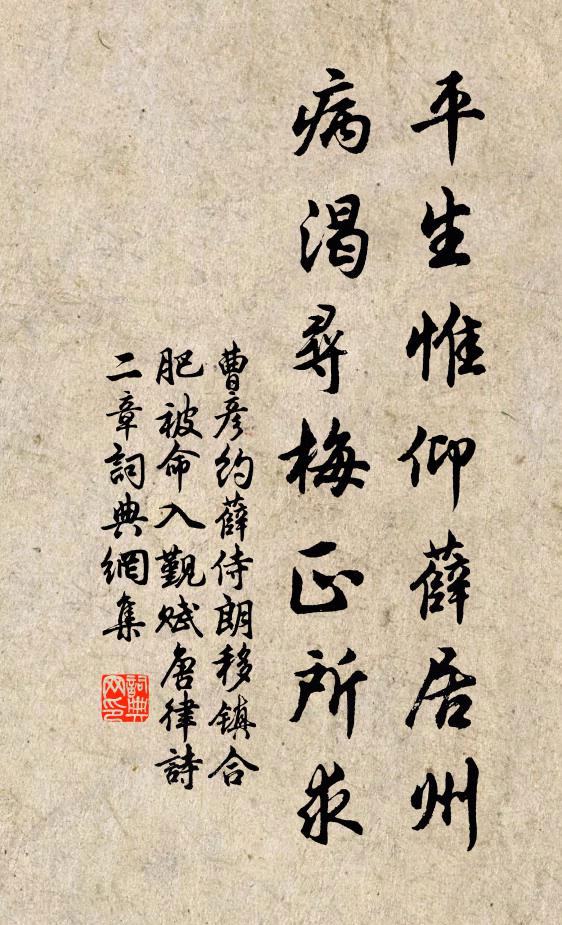 平生惟仰薛居州
病渴尋梅正所求
曹彦約薛侍朗移鎮合
肥被命入觐赋唐律詩
二章詞典網集
詞典
网印